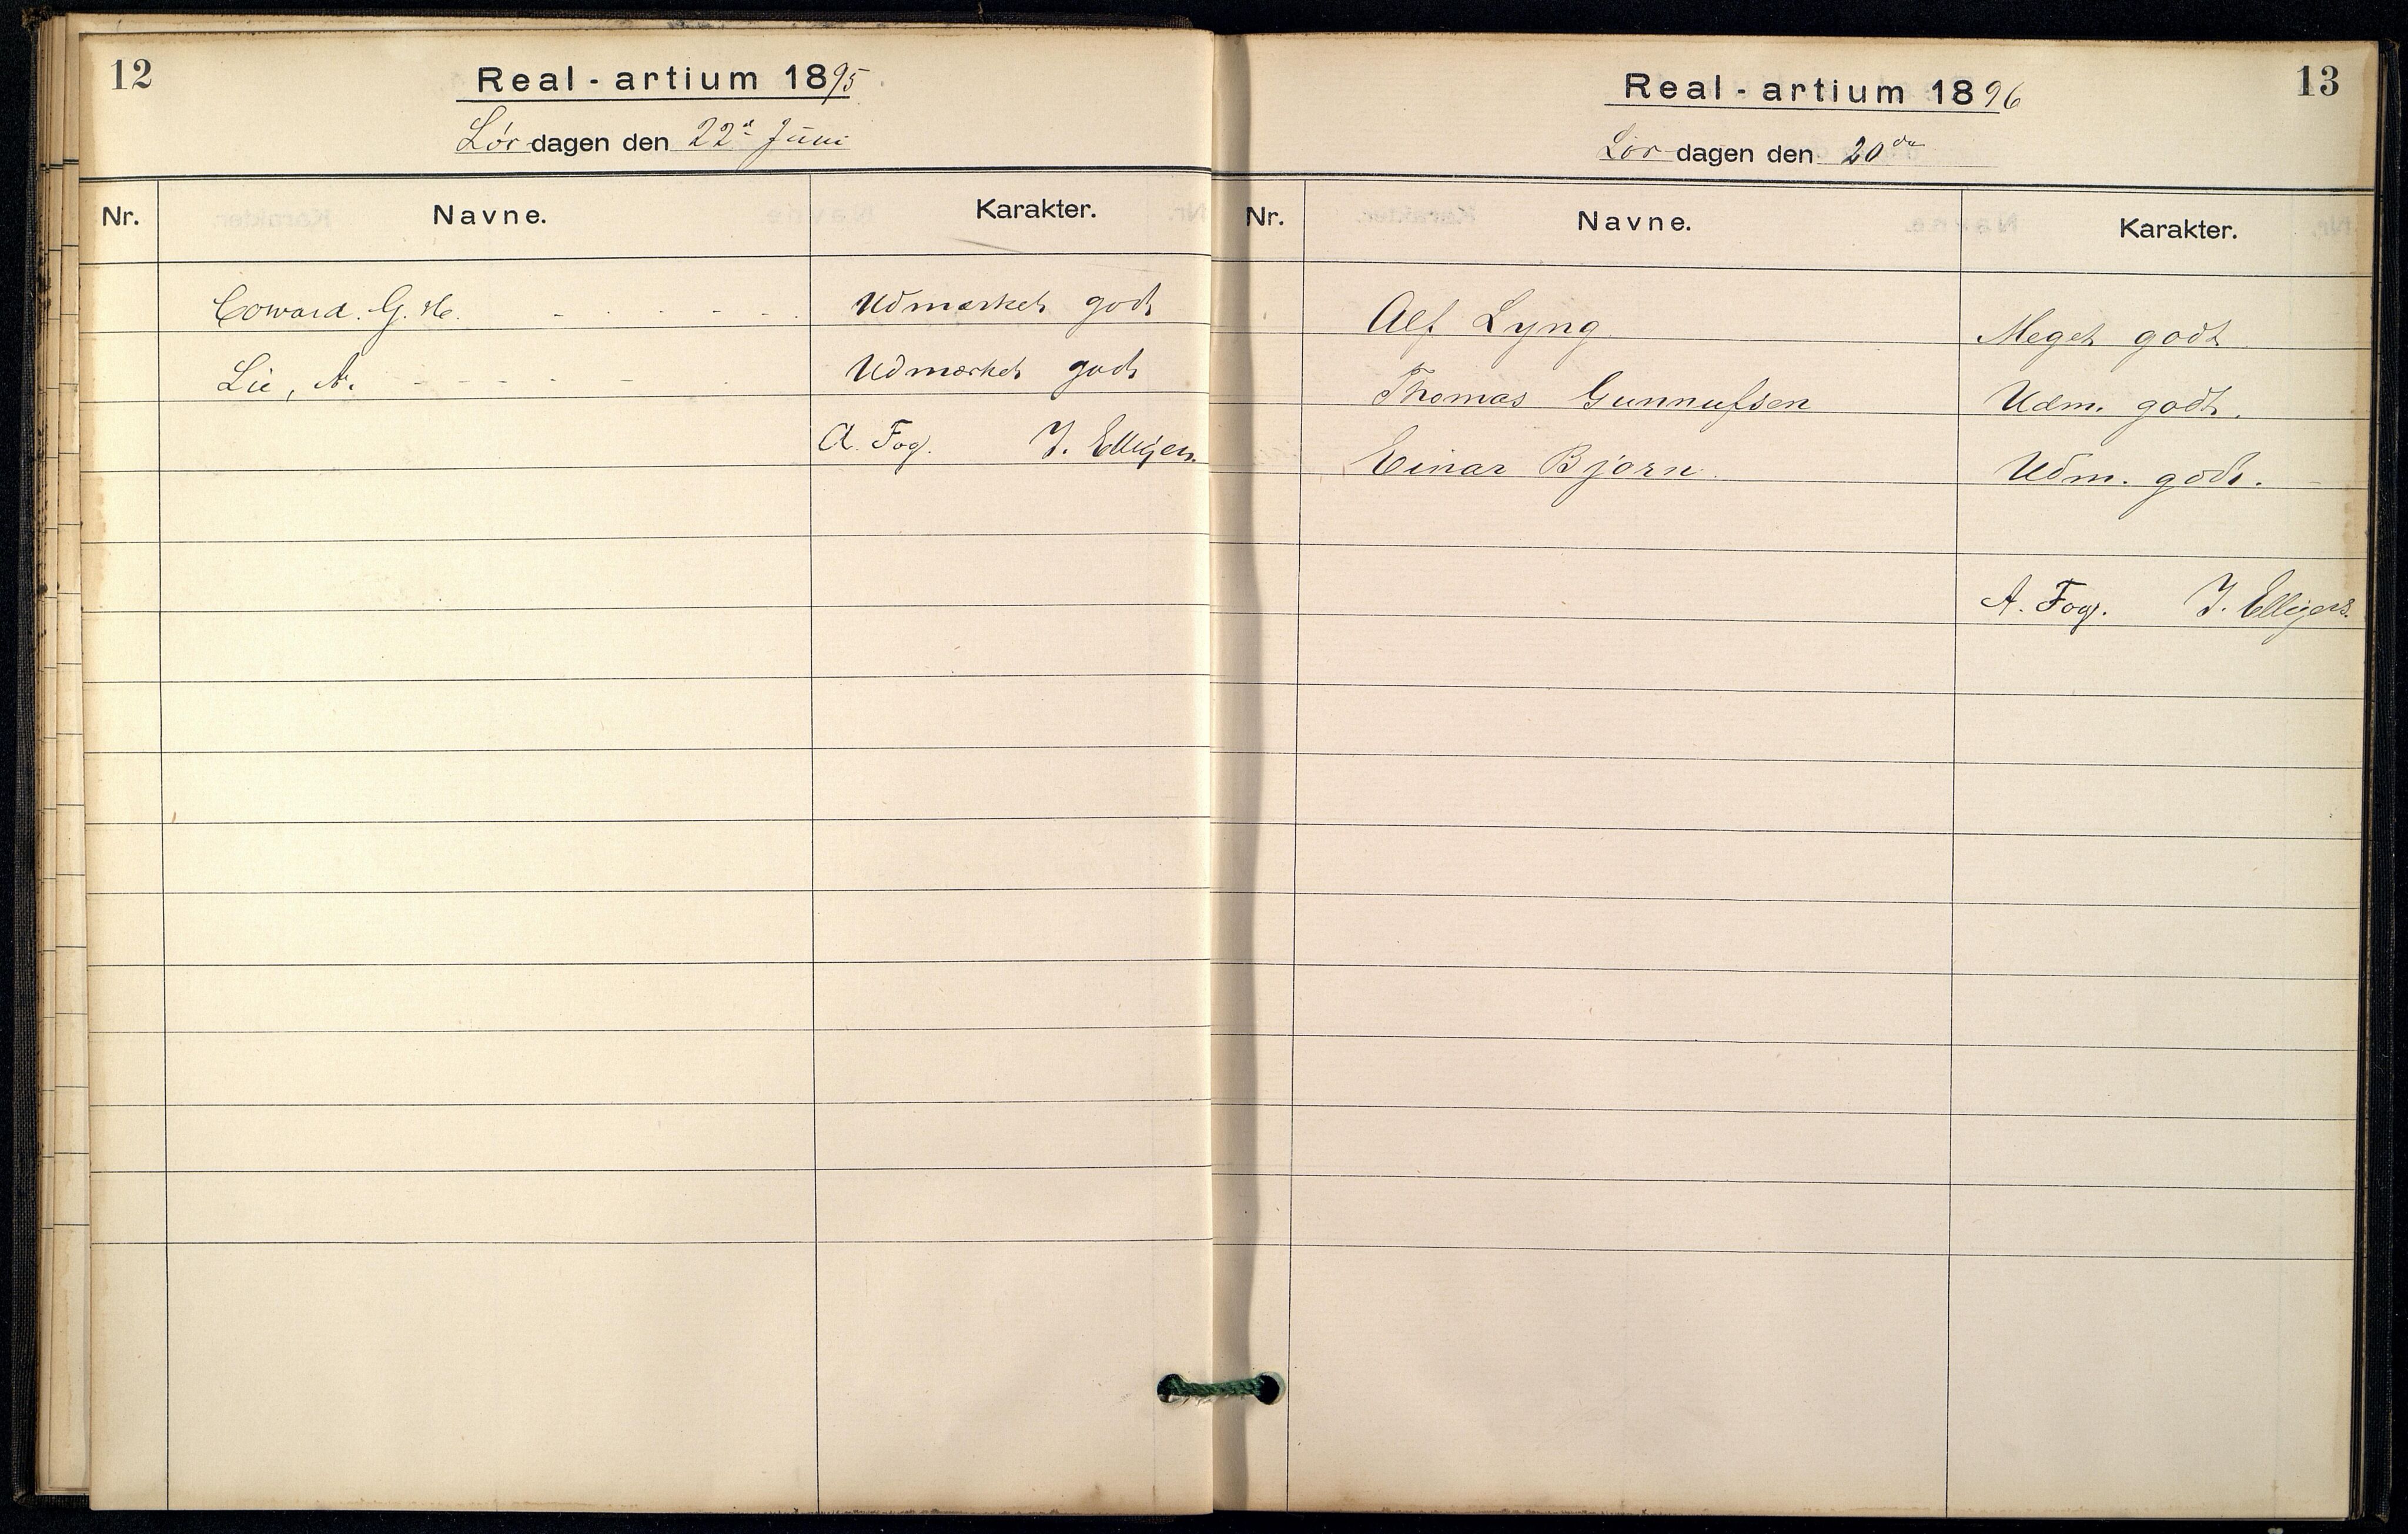 12
Real-artium 1895
Lørdagen den 22d Juni
Nr. Navne. Karakter.
Coward. G. H. Udmærket godt
Lie, A. Udmærket godt
A. Fog. J. Elligers.
13
Real-artium 1896
Lørdagen den 20de
Nr. Navne. Karakter.
Alf Lyng Meget godt
Thomas Gunnufsen Udm. godt.
Einar Bjørn. Udm. godt.
A. Fog. J. Elligers.